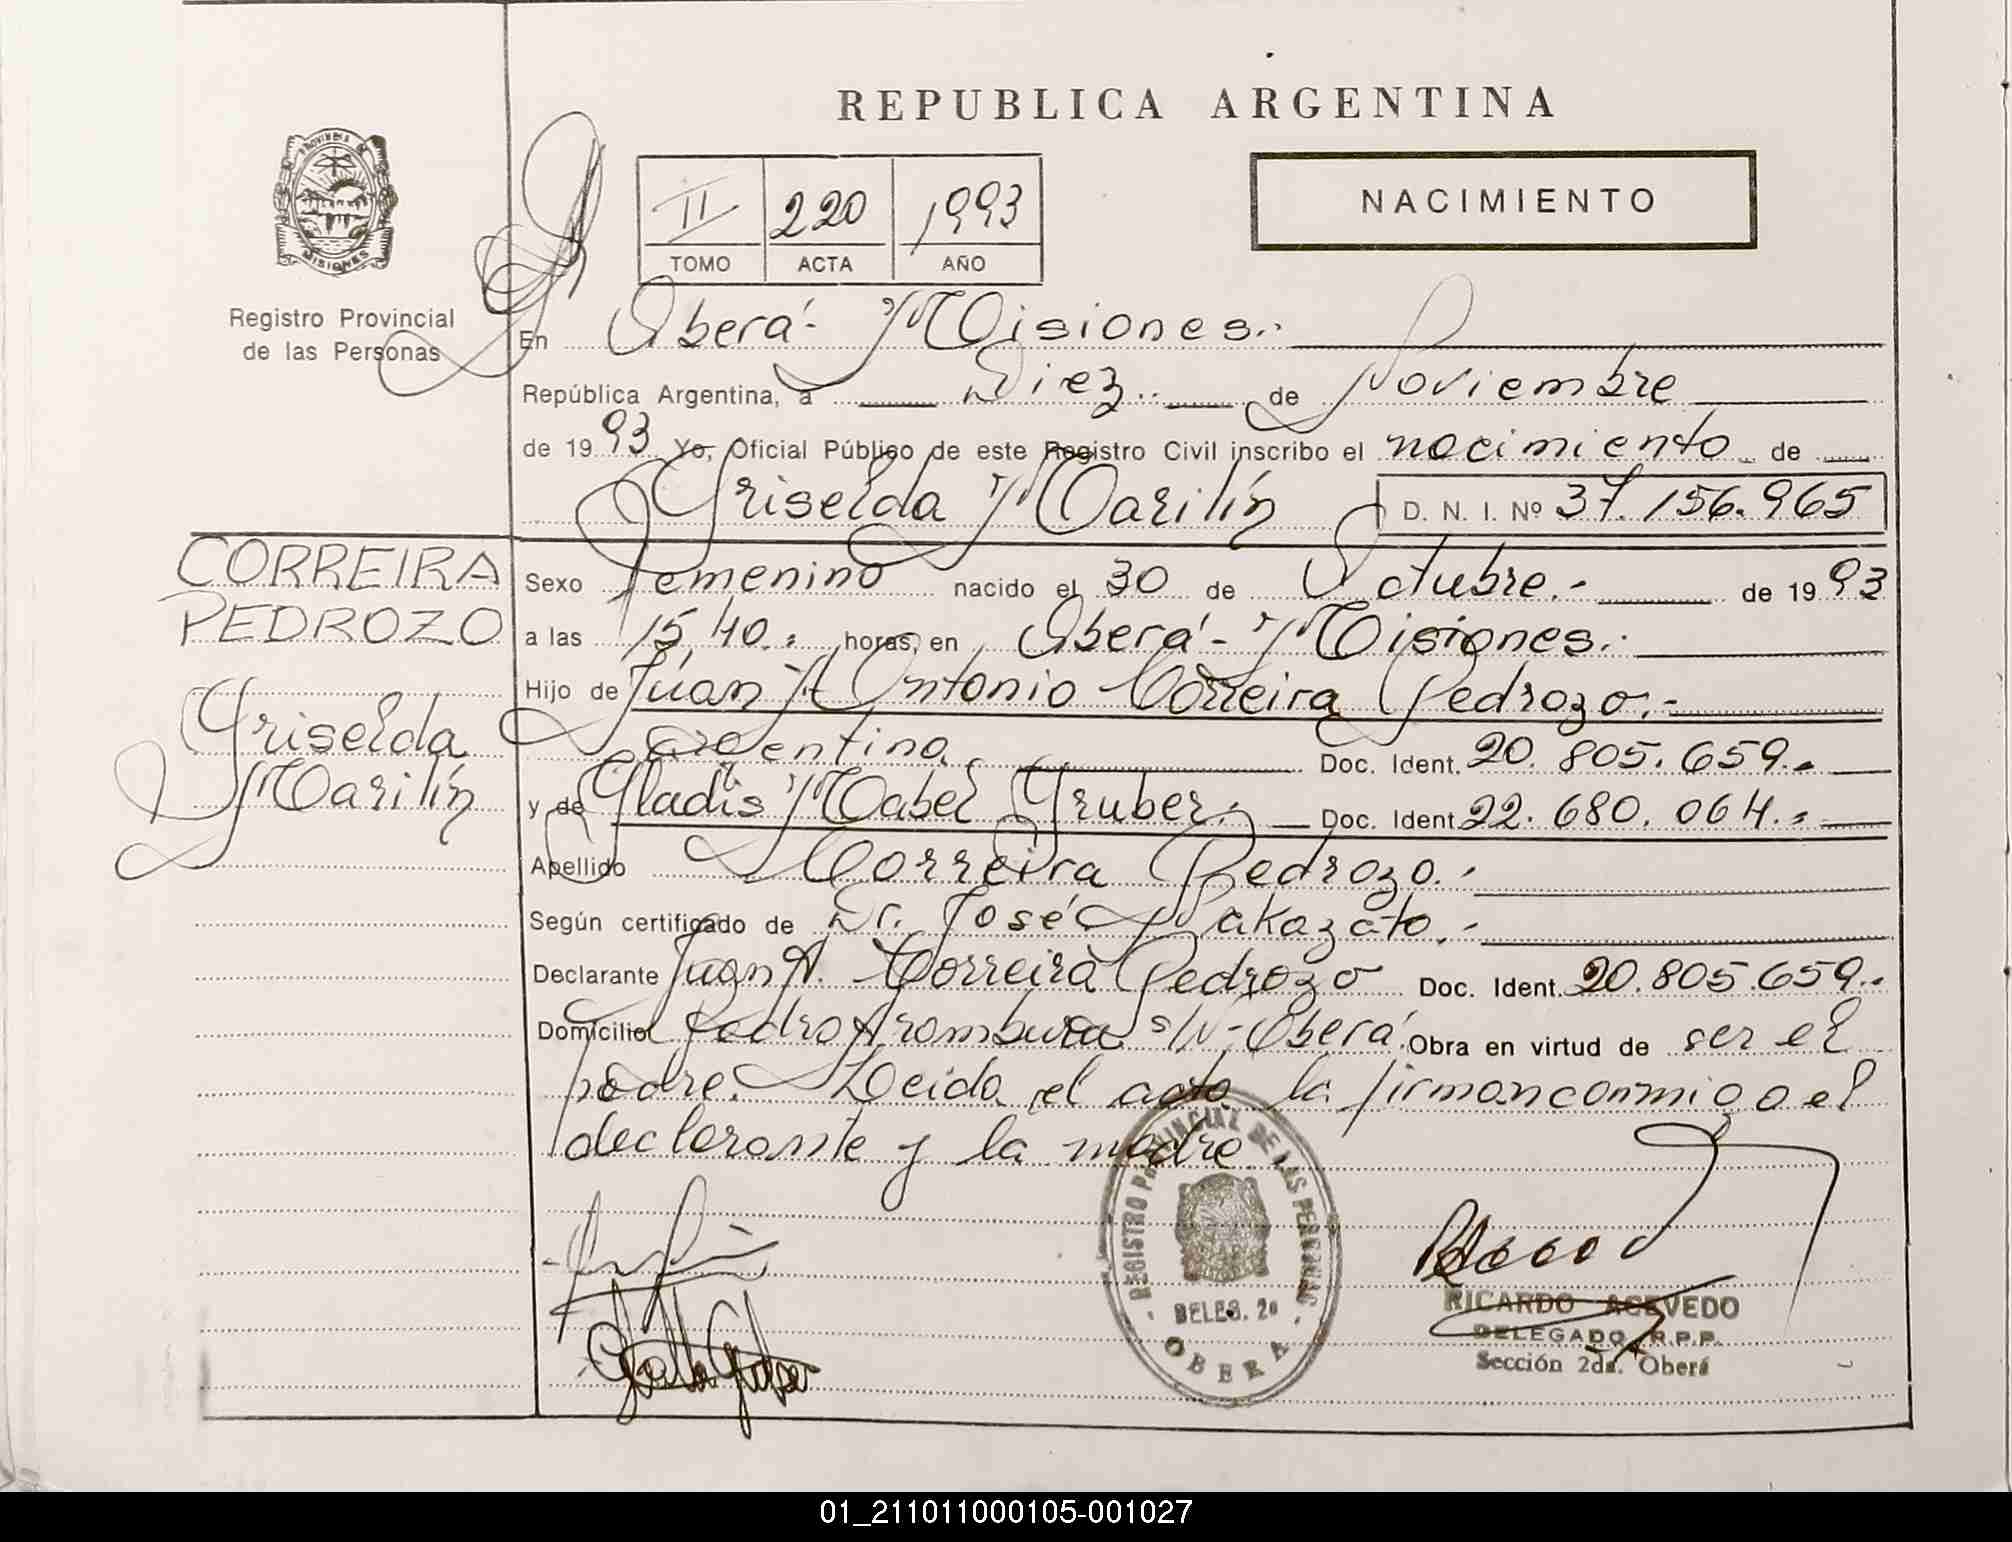 REPUBLICA ARGENTINA
PROVINCIA DE
MISIONES
Registro Provincial
de las Personas
II 220 1993
TOMO ACTA AÑO
NACIMIENTO
En Oberá- Misiones.-
República Argentina, a Diez.. de Noviembre
de 1993 Yo, Oficial Público de este Registro Civil inscribo el nacimiento de
Griselda Marilín D. N. I. Nº 37.156.965
CORREIRA
PEDROZO
Griselda
Marilín
Sexo Femenino nacido el 30 de Octubre.- de 1993
a las 15,40.- horas, en Oberá- Misiones.-
Hijo de Juan Antonio Correira Pedrozo.-
argentina Doc. Ident. 20.805.659.-
y de Gladis Mabel Gruber.- Doc. Ident. 22.680.064.-
Apellido Correira Pedrozo.-
Según certificado de Dr. José Nakazato.-
Declarante Juan A. Correira Pedrozo Doc. Ident. 20.805.659.-
Domicilio Pedro Aramburu s/N-Oberá. Obra en virtud de ser el
padre. Leida el acta la firman conmigo el
declarante y la madre.
REGISTRO PROVINCIAL DE LAS PERSONAS
DELEG. 2a
OBERA
RICARDO ACEVEDO
DELEGADO R.P.P.
Sección 2da. Oberá
01_211011000105-001027